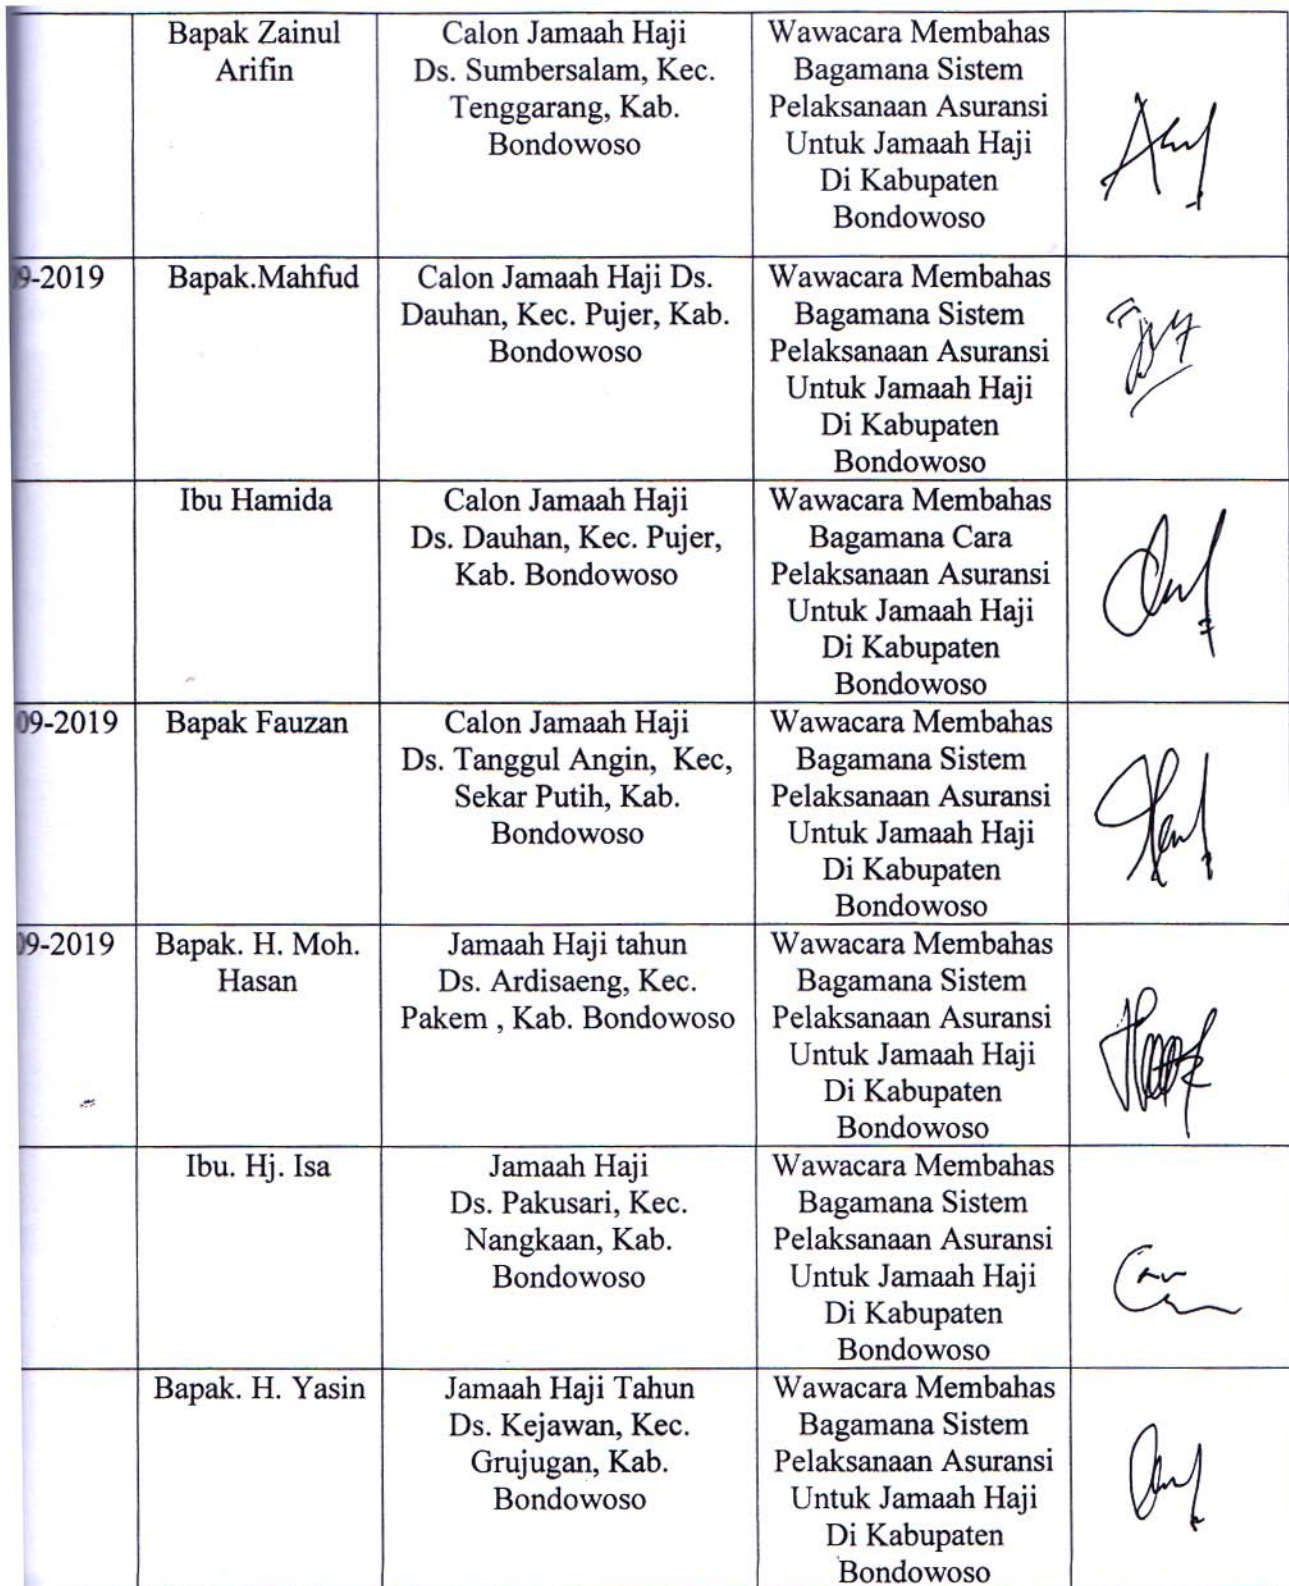 Bapak Zainul
Arifin
Calon Jamaah Haji
Ds. Sumbersalam, Kec.
Tenggarang, Kab.
Bondowoso
Wawacara Membahas
Bagamana Sistem
Pelaksanaan Asuransi
Untuk Jamaah Haji
Di Kabupaten
Bondowoso
09-2019
Bapak.Mahfud
Calon Jamaah Haji Ds.
Dauhan, Kec. Pujer, Kab.
Bondowoso
Wawacara Membahas
Bagamana Sistem
Pelaksanaan Asuransi
Untuk Jamaah Haji
Di Kabupaten
Bondowoso
Ibu Hamida
Calon Jamaah Haji
Ds. Dauhan, Kec. Pujer,
Kab. Bondowoso
Wawacara Membahas
Bagamana Cara
Pelaksanaan Asuransi
Untuk Jamaah Haji
Di Kabupaten
Bondowoso
09-2019
Bapak Fauzan
Calon Jamaah Haji
Ds. Tanggul Angin, Kec,
Sekar Putih, Kab.
Bondowoso
Wawacara Membahas
Bagamana Sistem
Pelaksanaan Asuransi
Untuk Jamaah Haji
Di Kabupaten
Bondowoso
09-2019
Bapak. H. Moh.
Hasan
Jamaah Haji tahun
Ds. Ardisaeng, Kec.
Pakem , Kab. Bondowoso
Wawacara Membahas
Bagamana Sistem
Pelaksanaan Asuransi
Untuk Jamaah Haji
Di Kabupaten
Bondowoso
Ibu. Hj. Isa
Jamaah Haji
Ds. Pakusari, Kec.
Nangkaan, Kab.
Bondowoso
Wawacara Membahas
Bagamana Sistem
Pelaksanaan Asuransi
Untuk Jamaah Haji
Di Kabupaten
Bondowoso
Bapak. H. Yasin
Jamaah Haji Tahun
Ds. Kejawan, Kec.
Grujugan, Kab.
Bondowoso
Wawacara Membahas
Bagamana Sistem
Pelaksanaan Asuransi
Untuk Jamaah Haji
Di Kabupaten
Bondowoso